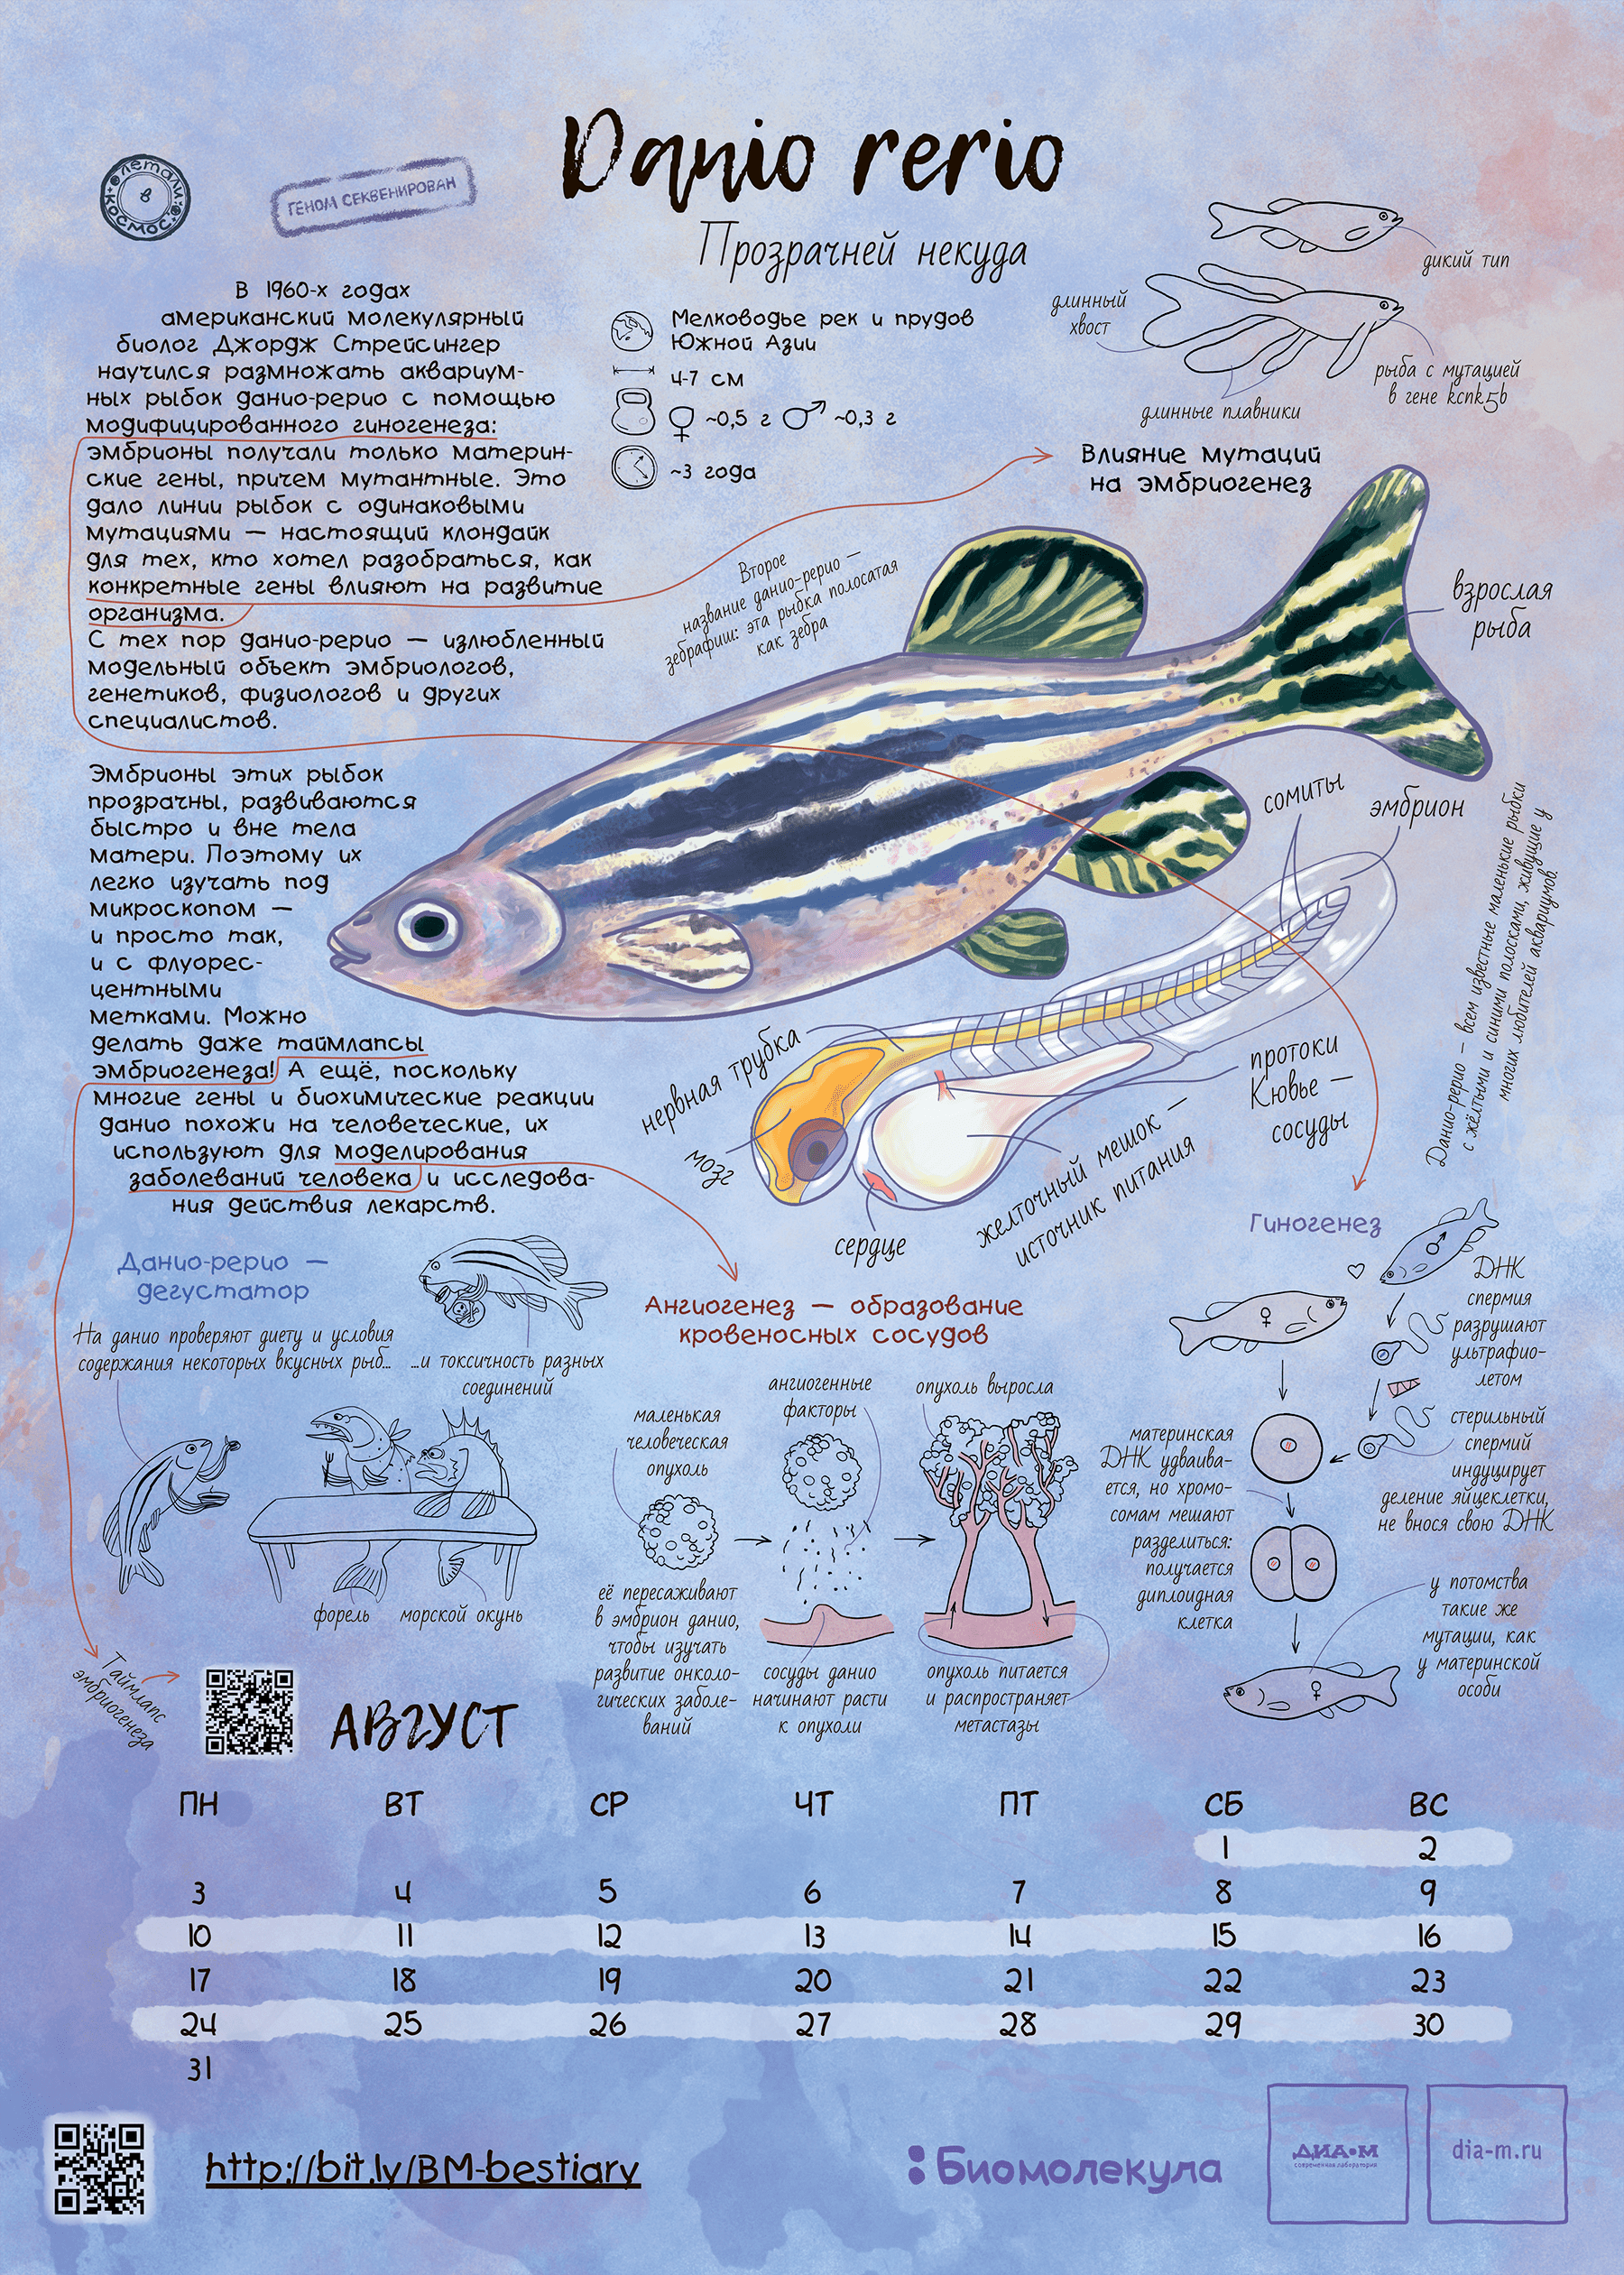 Danio rerio
Прозрачней некуда
летали
в
космос
ГЕНОМ СЕКВЕНИРОВАН
В 1960-х годах
американский молекулярный
биолог Джордж Стрейсингер
научился размножать аквариум-
ных рыбок данио-рерио с помощью
модифицированного гиногенеза:
эмбрионы получали только материн-
ские гены, причем мутантные. Это
дало линии рыбок с одинаковыми
мутациями — настоящий клондайк
для тех, кто хотел разобраться, как
конкретные гены влияют на развитие
организма.
С тех пор данио-рерио — излюбленный
модельный объект эмбриологов,
генетиков, физиологов и других
специалистов.
Эмбрионы этих рыбок
прозрачны, развиваются
быстро и вне тела
матери. Поэтому их
легко изучать под
микроскопом —
и просто так,
и с флуорес-
центными
метками. Можно
делать даже таймлапсы
эмбриогенеза! А ещё, поскольку
многие гены и биохимические реакции
данио похожи на человеческие, их
используют для моделирования
заболеваний человека и исследова-
ния действия лекарств.
Мелководье рек и прудов
Южной Азии
4-7 см
♀ ~0,5 г ♂ ~0,3 г
~3 года
дикий тип
длинный
хвост
рыба с мутацией
в гене kcnk5b
длинные плавники
Влияние мутаций
на эмбриогенез
Второе
название данио-рерио —
зебрафиш: эта рыбка полосатая
как зебра
взрослая
рыба
сомиты
эмбрион
Данио-рерио — всем известные маленькие рыбки
с жёлтыми и синими полосками, живущие у
многих любителей аквариумов.
нервная трубка
мозг
сердце
желточный мешок —
источник питания
протоки
Кювье —
сосуды
Данио-рерио —
дегустатор
На данио проверяют диету и условия
содержания некоторых вкусных рыб...
...и токсичность разных
соединений
форель
морской окунь
Ангиогенез — образование
кровеносных сосудов
маленькая
человеческая
опухоль
её пересаживают
в эмбрион данио,
чтобы изучать
развитие онколо-
гических заболе-
ваний
ангиогенные
факторы
сосуды данио
начинают расти
к опухоли
опухоль выросла
опухоль питается
и распространяет
метастазы
Гиногенез
♂
♀
ДНК
спермия
разрушают
ультрафио-
летом
стерильный
спермий
индуцирует
деление яйцеклетки,
не внося свою ДНК
материнская
ДНК удваива-
ется, но хромо-
сомам мешают
разделиться:
получается
диплоидная
клетка
у потомства
такие же
мутации, как
у материнской
особи
♀
Таймлапс
эмбриогенеза
АВГУСТ
ПН ВТ СР ЧТ ПТ СБ ВС
1 2
3 4 5 6 7 8 9
10 11 12 13 14 15 16
17 18 19 20 21 22 23
24 25 26 27 28 29 30
31
http://bit.ly/BM-bestiary
Биомолекула
ДИА•М
современная лаборатория
dia-m.ru